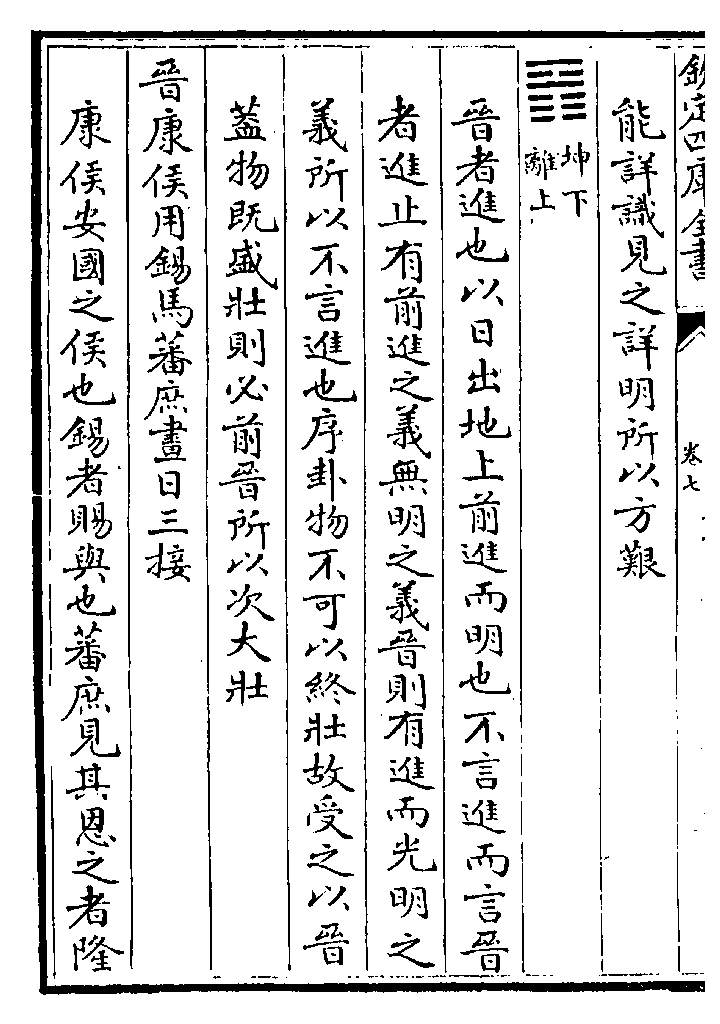 欽定四庫全書
卷七
能詳識見之詳明所以方艱
䷢坤下離上
晉者進也以日出地上前進而明也不言進而言晉
者進止有前進之義無明之義晉則有進而光明之
義所以不言進也序卦物不可以終壯故受之以晉
蓋物既盛壯則必前晉所以次大壯
晉康侯用錫馬蕃庶晝日三接
康侯安國之侯也錫者賜與也蕃庶見其恩之者隆